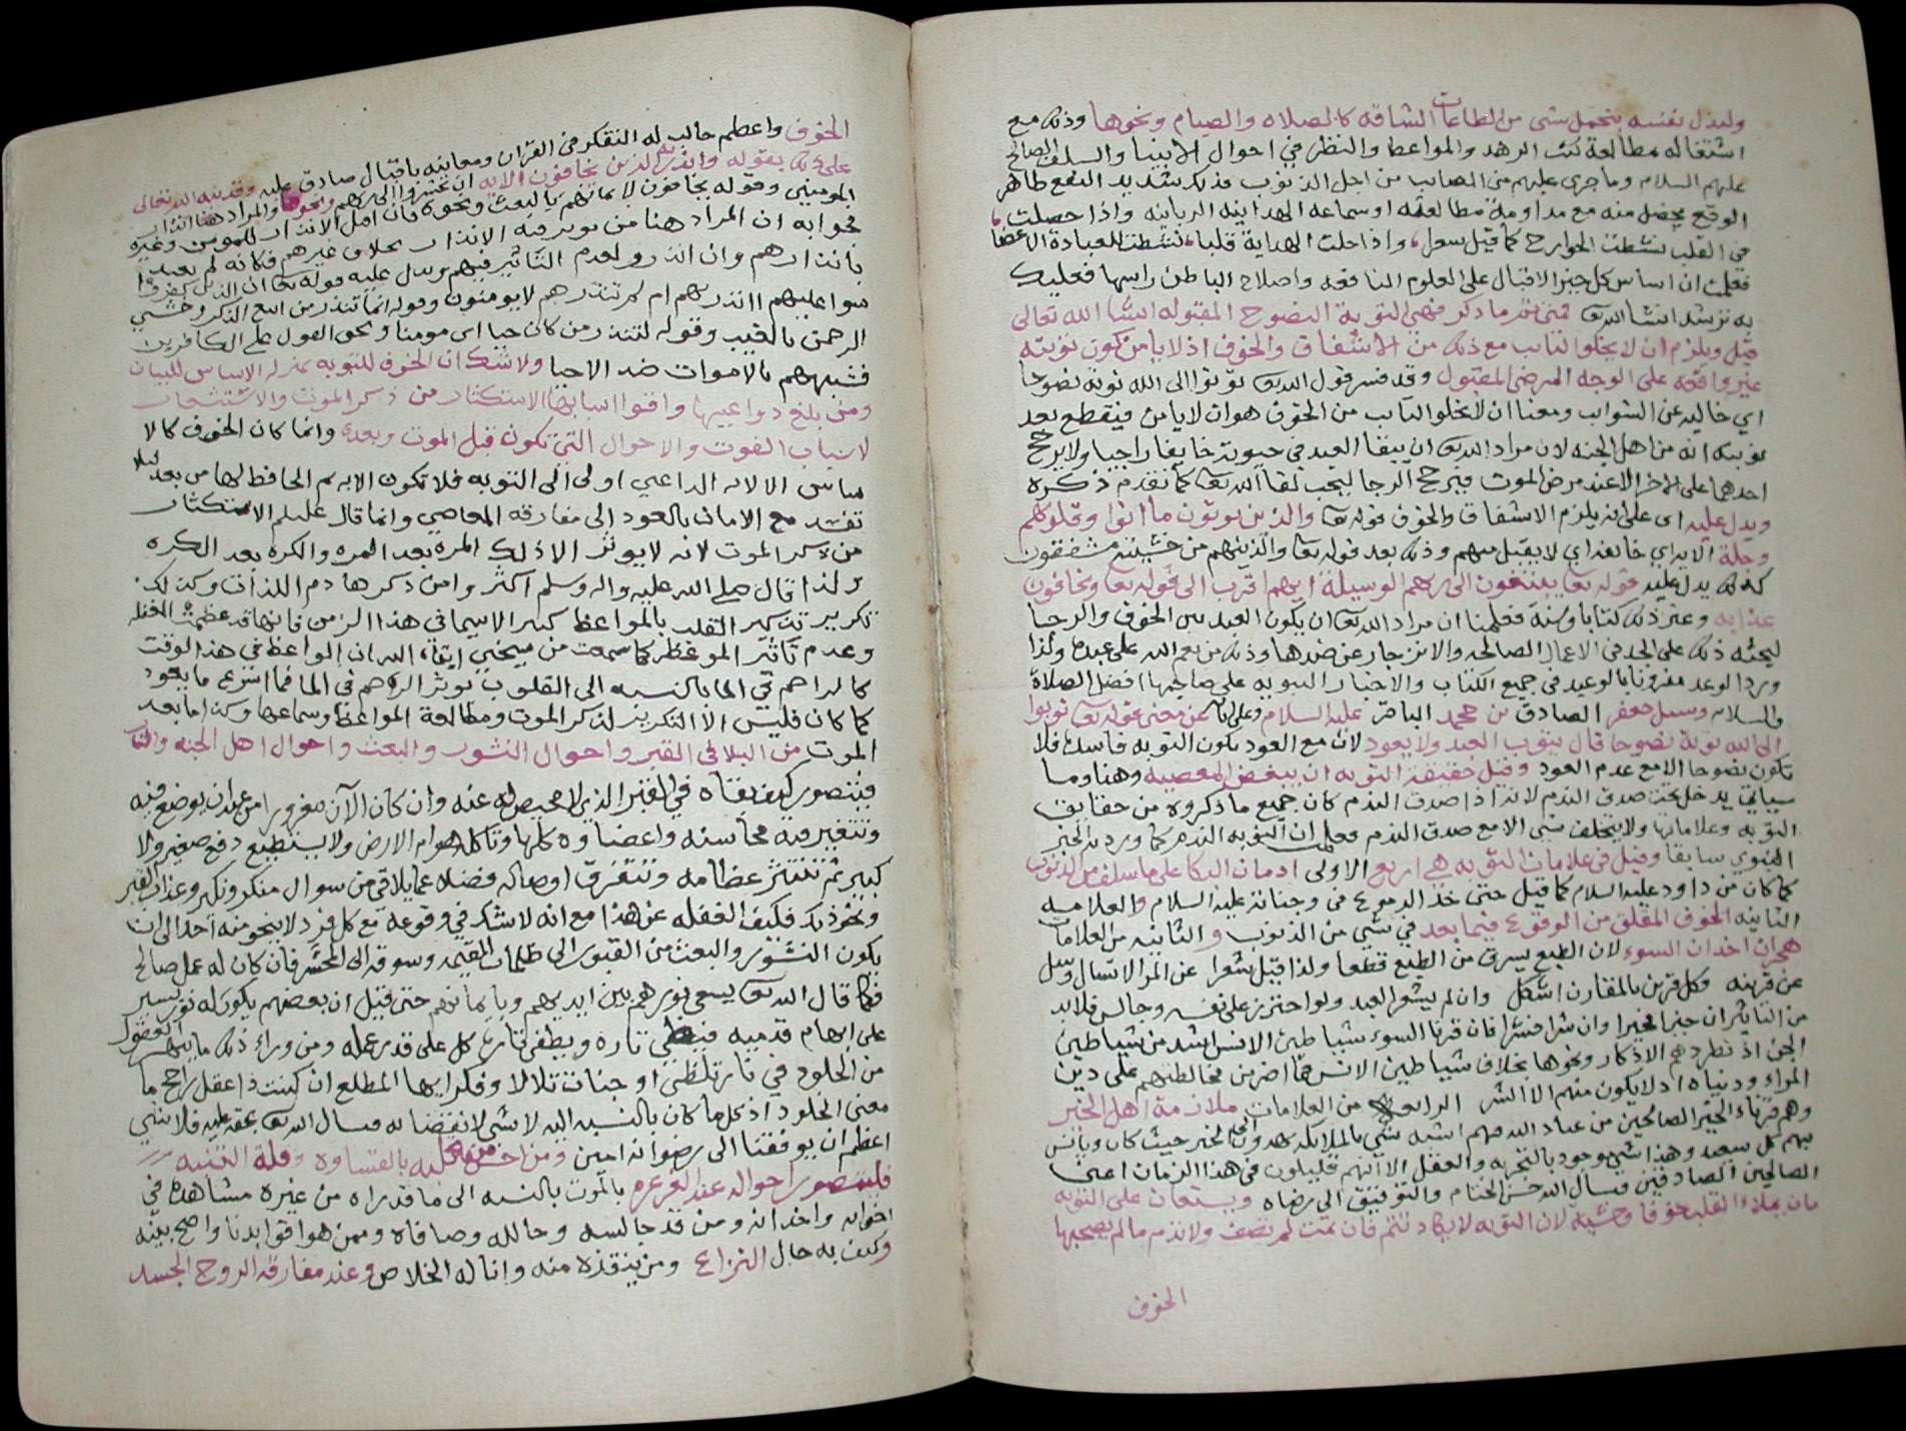 وليذل نفسه بتحمل شي من الطاعات الشاقه كالصلاه والصيام ونحوها وذلك مع
اشتغاله بمطالعة كتب الزهد والمواعظ والنظر في احوال الانبيا والسلف الصالح
عليهم السلام وما جرى عليهم من المصائب من اجل الذنوب فذلك شديد النفع ظاهر
الوقع يحصل منه مع مداومة مطالعته او سماعه الهدايه الربانيه واذا حصلت
في القلب نشطت الجوارح كما قيل شعرا واذا حلت الهداية قلبا نشطت للعبادة الاعضا
فعلمت ان اساس كل خير الاقبال على العلوم النافعه واصلاح الباطن راسها فعليك
به ترشد انشا الله فمتى تم ما ذكر فهي التوبة النصوح المقبوله انشا الله تعالى
قيل ويلزم ان لا يخلوا التايب مع ذلك من الاشفاق والخوف اذ لا يامن كون توبته
غير واقعه على الوجه المرضي المقبول وقد فسر قول الله تعا توبوا الى الله توبة نصوحا
اي خاليه عن الشوايب ومعنا ان لا يخلو التايب من الخوف هو ان لا يامن فيقطع بعد
توبته انه من اهل الجنه لان مراد الله تعا ان يبقا العبد في حيوته خايفا راجيا ولا يرجح
احدهما على الاخر الا عند مرض الموت فيرجح الرجا ليحب لقا الله تعا كما تقدم ذكره
ويدل عليه اى على انه يلزم الاشفاق والخوف قوله تعا والذين يوتون ما اتوا وقلوبهم
وجلة الايه اي خائفه اي لا يقبل منهم وذلك بعد قوله تعا والذين هم من خشية ربهم مشفقون
كذلك يدل عليه قوله تعا يبتغون الى ربهم الوسيلة ايهم اقرب الى قوله تعا ويخافون
عذابه وغير ذلك كتابا وسنة فعلمنا ان مراد الله تعا ان يكون العبد بين الخوف والرجا
ليحثه ذلك على الجد في الاعمال الصالحه والانزجار عن ضدها وذلك من نعم الله على عبده ولذا
ورد الوعد مقرونا بالوعيد في جميع الكتاب والاخبار النبويه على صاحبها افضل الصلاة
والسلام وسئل جعفر الصادق بن محمد الباقر عليه السلام وعلى ابائه عن معنى قوله تعا توبوا
الى الله توبة نصوحا قال يتوب العبد ولا يعود لان مع العود تكون التوبه فاسده فلا
تكون نصوحا الا مع عدم العود وقيل حقيقة التوبه ان يبغض المعصيه وهنا وما
سياتي يدخل تحت صدق الندم لانه اذا صدق الندم كان جميع ما ذكروه من حقايق
التوبه وعلاماتها ولا يتخلف شي الا مع صدق الندم فعلم ان التوبه الندم كما ورد به الخبر
النبوي سابقا وقيل في علامات التوبه هي اربع الاولى ادمان البكا على ما سلف من الذنوب
كما كان من داود عليه السلام كما قيل حتى خد الدموع في وجناته عليه السلام والعلامه
الثانيه الخوف المقلق من الوقوع فيما بعد في شي من الذنوب والثالثه من العلامات
هجران اخدان السوء لان الطبع يسرق من الطبع قطعا ولذا قيل شعرا عن المرء لا تسال وسل
عن قرينه فكل قرين بالمقارن اشكل وان لم يشعر العبد ولو احترز على نفسه وجالس فلا بد
من التاثر ان خيرا فخيرا وان شرا فشرا فان قرنا السوء شياطين الانس اشد من شياطين
الجن اذ تطردهم الاذكار ونحوها بخلاف شياطين الانس فما اضر من مخالطتهم على دين
المراء ودنياه اذ لا يكون منهم الا الشر الرابعه من العلامات ملازمة اهل الخير
وهم قرناء الخير الصالحين من عباد الله فهم اشبه شي بالملائكه يهدون الى الخير حيث كان ويانس
بهم كل سعيد وهذا شي موجود بالتجربه والعقل الا انهم قليلون في هذا الزمان اعني
الصالحين الصادقين فنسال الله حسن الختام والتوفيق الى رضاه ويستعان على التوبه
بان يملاء القلب خوفا وخشية لان التوبه لا يكاد تتم فان تمت لم تضعف ولا تذم ما لم يصحبها
الخوف
الخوف واعظم جالب له التفكر في القران ومعانيه باقبال صادق عليه وقد نبه الله تعالى
على ذلك بقوله وانذر به الذين يخافون الايه ان يحشروا الى ربهم ونحوها والمراد هنا انذار
المومنين وقوله يخافون لايمانهم بالبعث ونحوه فان اصل الانذار للمومن وغيره
فجوابه ان المراد هنا من يوثر فيه الانذار بخلاف غيرهم فكانه لم يعبد
بانذارهم وان انذروا لعدم التاثير فيهم ويدل عليه قوله تعا ان الذين كفروا
سوا عليهم اانذرتهم ام لم تنذرهم لا يومنون وقوله انما تنذر من اتبع الذكر وخشي
الرحمن بالغيب وقوله لتنذر من كان حيا اى مومنا ويحق القول على الكافرين
فشبههم بالاموات ضد الاحيا ولا شك ان الخوف للتوبه بمنزلة الاساس للبنيان
ومن بلغ دواعيها واقوا اسبابها الاستكثار من ذكر الموت والاستشعار
لاسباب الفوت والاحوال التي تكون قبل الموت وبعده وانما كان الخوف كالا
ساس لانه الداعي اولى الى التوبه فلا تكون الا به ثم الحافظ لها من بعد ليلا
تفسد مع الامان بالعود الى مفارقه المعاصي وانما قال عليكم الاستكثار
من ذكر الموت لانه لا يوثر الا ذلك المرة بعد المره والكره بعد الكره
ولذا قال صلى الله عليه واله وسلم اكثروا من ذكر هادم اللذات وكذلك
تكرير تذكير القلب بالمواعظ كثيرا لاسيما في هذا الزمن فانها قد عظمت الغفله
وعدم تاثير الموعظه كما سمعت من شيخي ابقاه الله ان الواعظ في هذا الوقت
كالراحم في الما بالنسبه الى القلوب يوثر الرجم في الما فما اسرع ما يعود
كما كان فليس الا التكرير لذكر الموت ومطالعة المواعظ وسماعها وكذا ما بعد
الموت من البلا في القبر واحوال النشور والبعث واحوال اهل الجنه والنار
فيتصور كيف بقاه في القبر الذي لا محيص له عنه وان كان الان مغرور امن عبدان يوضع فيه
وتتغير فيه محاسنه واعضاوه كلها وتاكله هوام الارض ولا يستطيع دفع صغير ولا
كبير ثم تنتثر عظامه وتتفرق اوصاله فضلا عما يلاقي من سوال منكر ونكير وعذاب القبر
ونحو ذلك فكيف الغفله عن هذا مع انه لا شك في وقوعه مع كل فرد لا ينجو منه احدا الى ان
يكون النشور والبعث من القبور الى ظلمات القيمه وسوقه الى المحشر فان كان له عمل صالح
فكما قال الله تعا يسعى نورهم بين ايديهم وبايمانهم حتى قيل ان بعضهم يكون له نور يسير
على ابهام قدميه فيضي تارة ويطفى تارة كل على قدر عمله ومن وراء ذلك ما يبهر العقول
من الخلود في نار تلظى او جنات تلالا وفكر ايها المطلع ان كنت ذا عقل راجح ما
معنى الخلود اذ كل ما كان بالنسبه اليه لا شي لانقضا له فنسال الله تعا بحقه عليه فلا شي
اعظم ان يوفقنا الى رضوانه امين ومن احس من قلبه بالقساوه وقلة التنبه
فليتصور احواله عند الغرغره بالموت بالنسبه الى ما قد راه من غيره مشاهده في
اخوانه واخدانه ومن قد جالسه وخالله وصافاه وممن هو اقوا بدنا واصح بينه
وكيف به حال النزاع ومن ينقذه منه وانا له الخلاص وعند مفارقه الروح الجسد